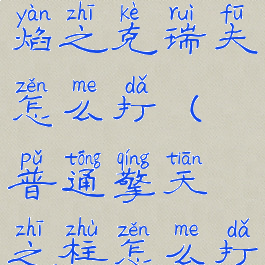 yàn zhī kè ruì fū
焰之克瑞夫
zěn me dǎ
怎么打（
pǔ tōng qíng tiān
普通擎天
zhī zhù zěn me dǎ
之柱怎么打